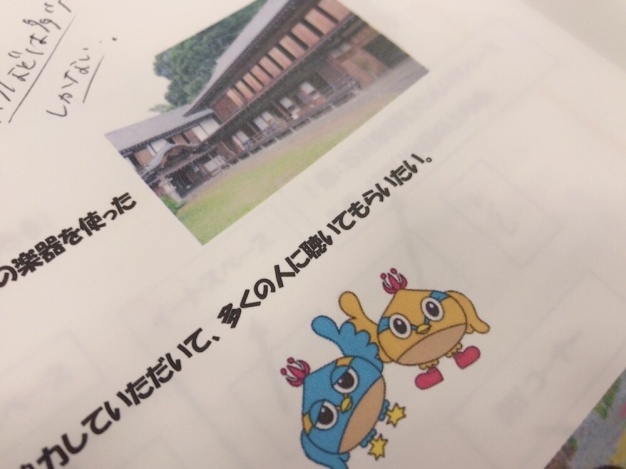 しかけない。
の楽器を使った
力していただいて、多くの人に聴いてもらいたい。